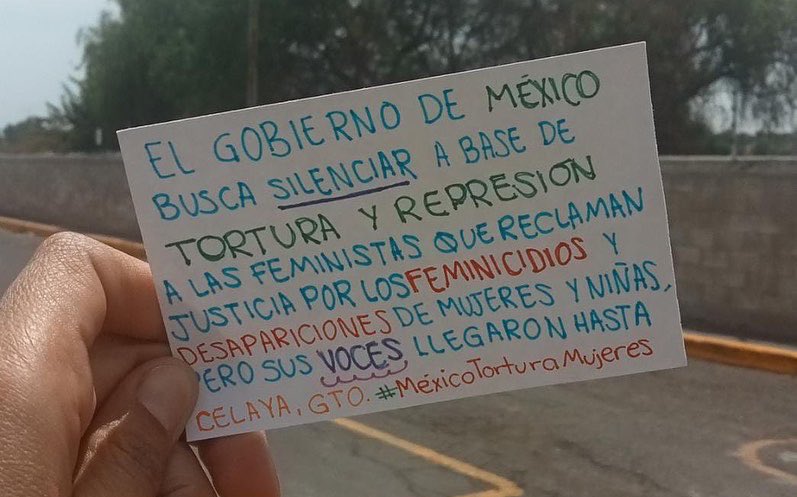 EL GOBIERNO DE MÉXICO
BUSCA SILENCIAR A BASE DE
TORTURA Y REPRESIÓN
A LAS FEMINISTAS QUE RECLAMAN
JUSTICIA POR LOS FEMINICIDIOS Y
DESAPARICIONES DE MUJERES Y NIÑAS,
PERO SUS VOCES LLEGARON HASTA
CELAYA, GTO. #MéxicoTorturaMujeres